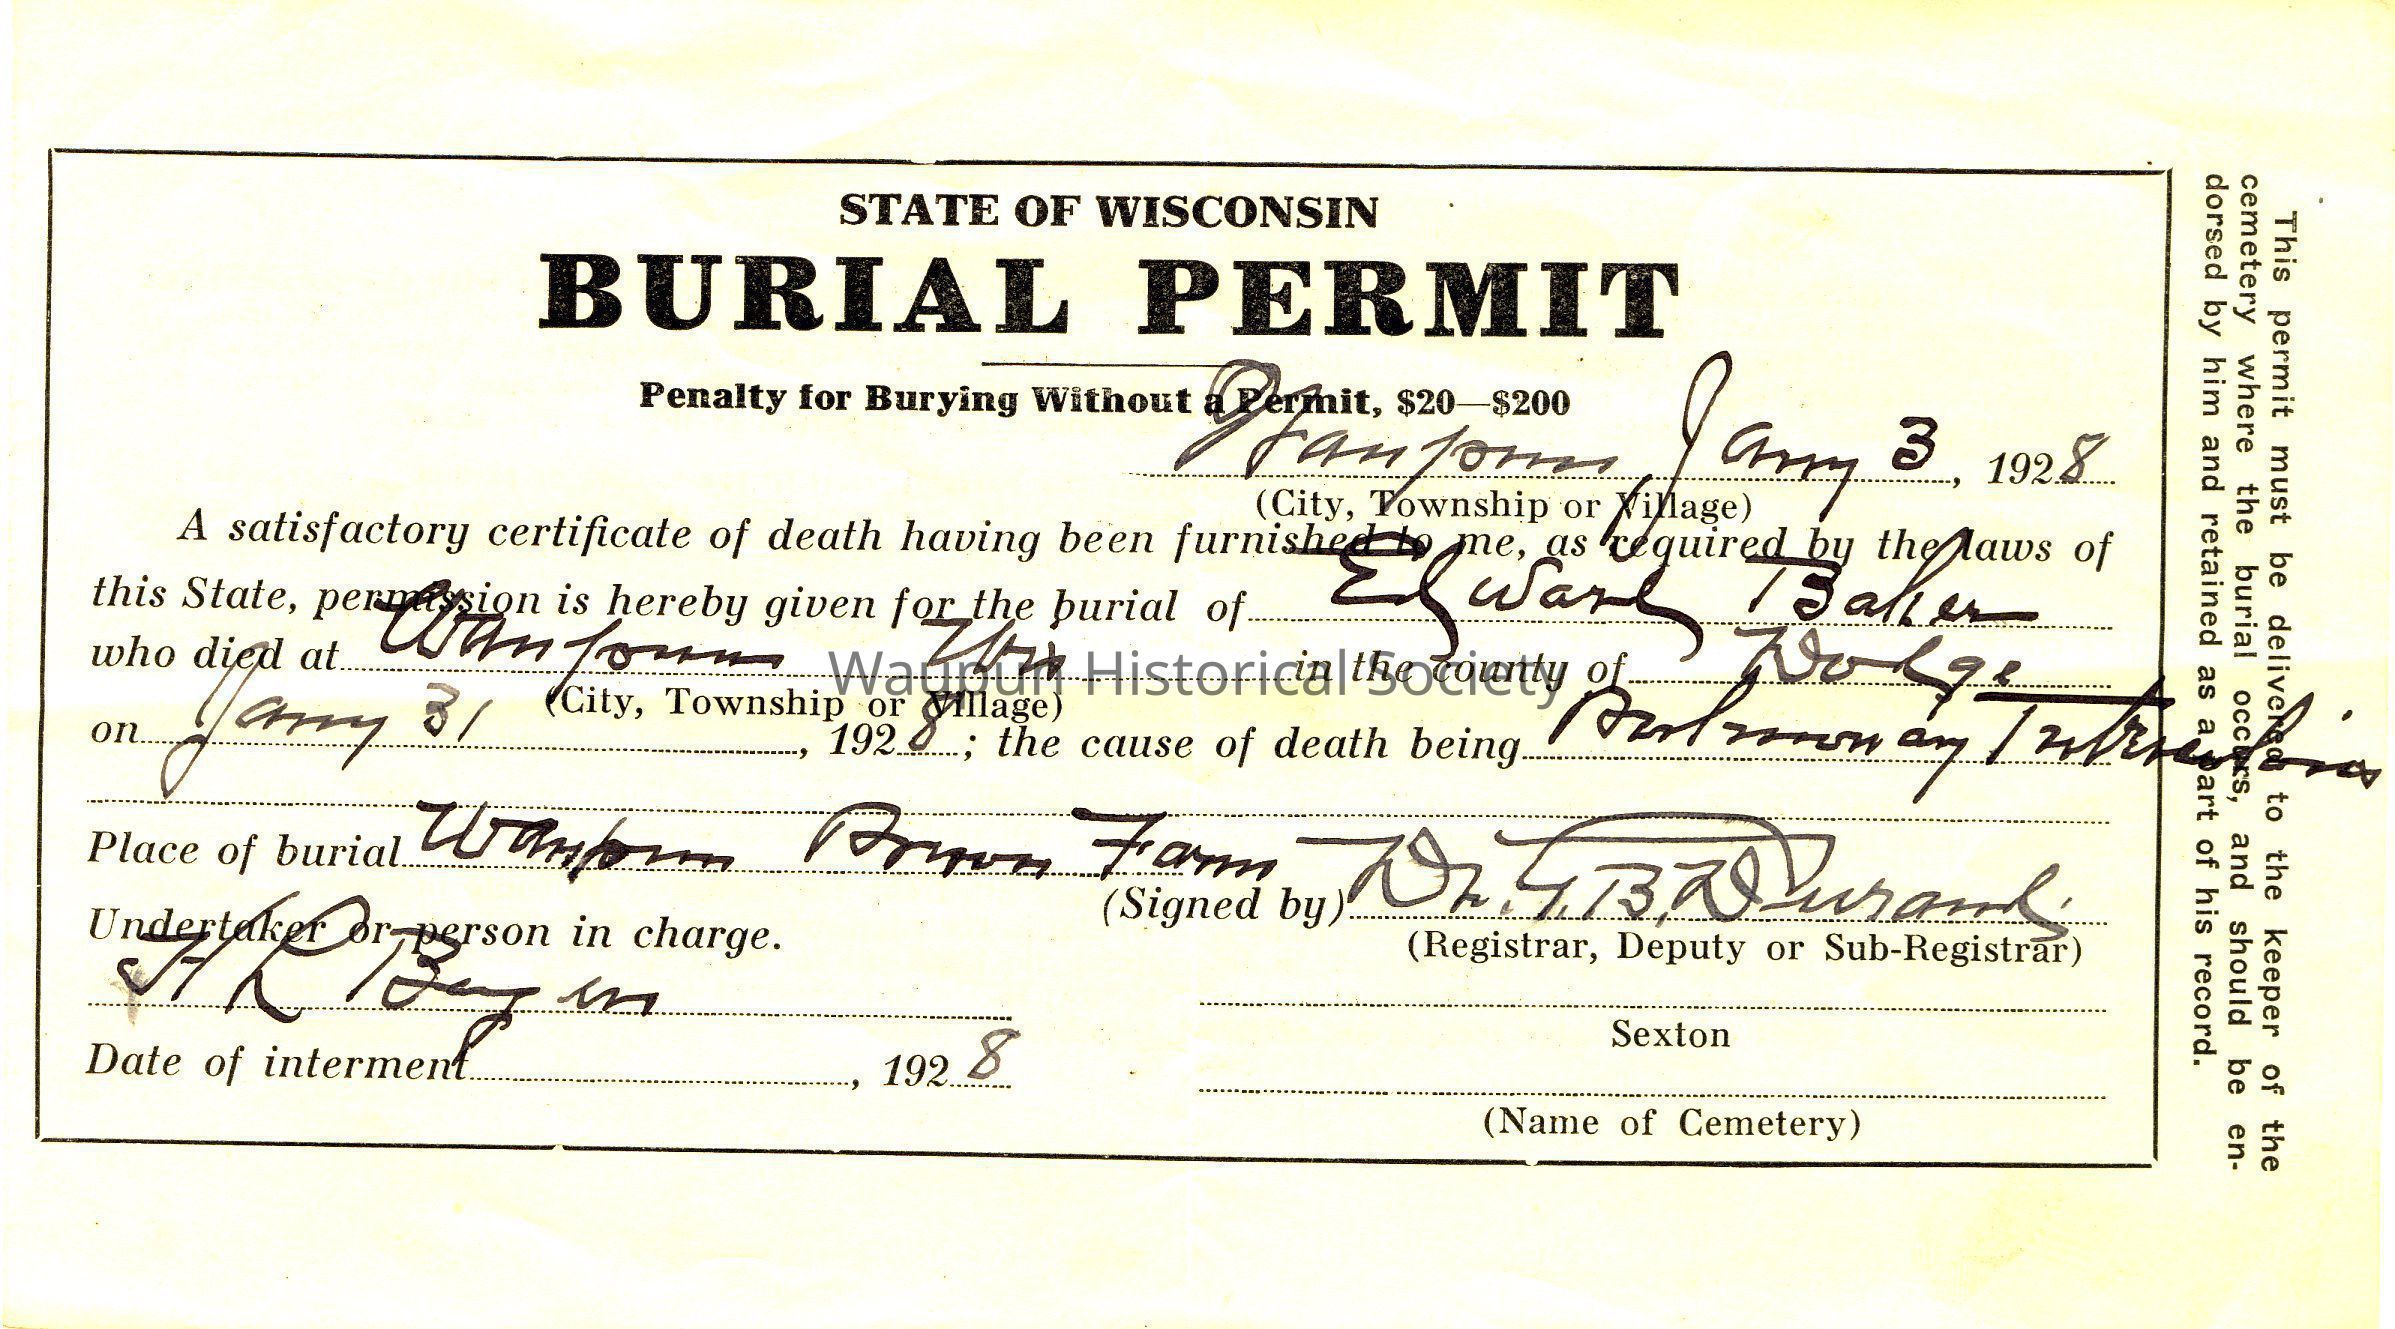 STATE OF WISCONSIN
BURIAL PERMIT
Penalty for Burying Without a Permit, $20—$200
Waupun, Jany 3, 1928
(City, Township or Village)
A satisfactory certificate of death having been furnished to me, as required by the laws of
this State, permission is hereby given for the burial of Edward Baker
who died at Waupun Wis in the county of Dodge
(City, Township or Village)
on Jany 31, 1928; the cause of death being Pulmonary Tuberculosis
Place of burial Waupun Prison Farm
(Signed by) Dr. T. B. Durand
Undertaker or person in charge.
(Registrar, Deputy or Sub-Registrar)
H R
Sexton
Date of interment, 1928
(Name of Cemetery)
This permit must be delivered to the keeper of the
cemetery where the burial occurs, and should be en-
dorsed by him and retained as a part of his record.
Waupun Historical Society